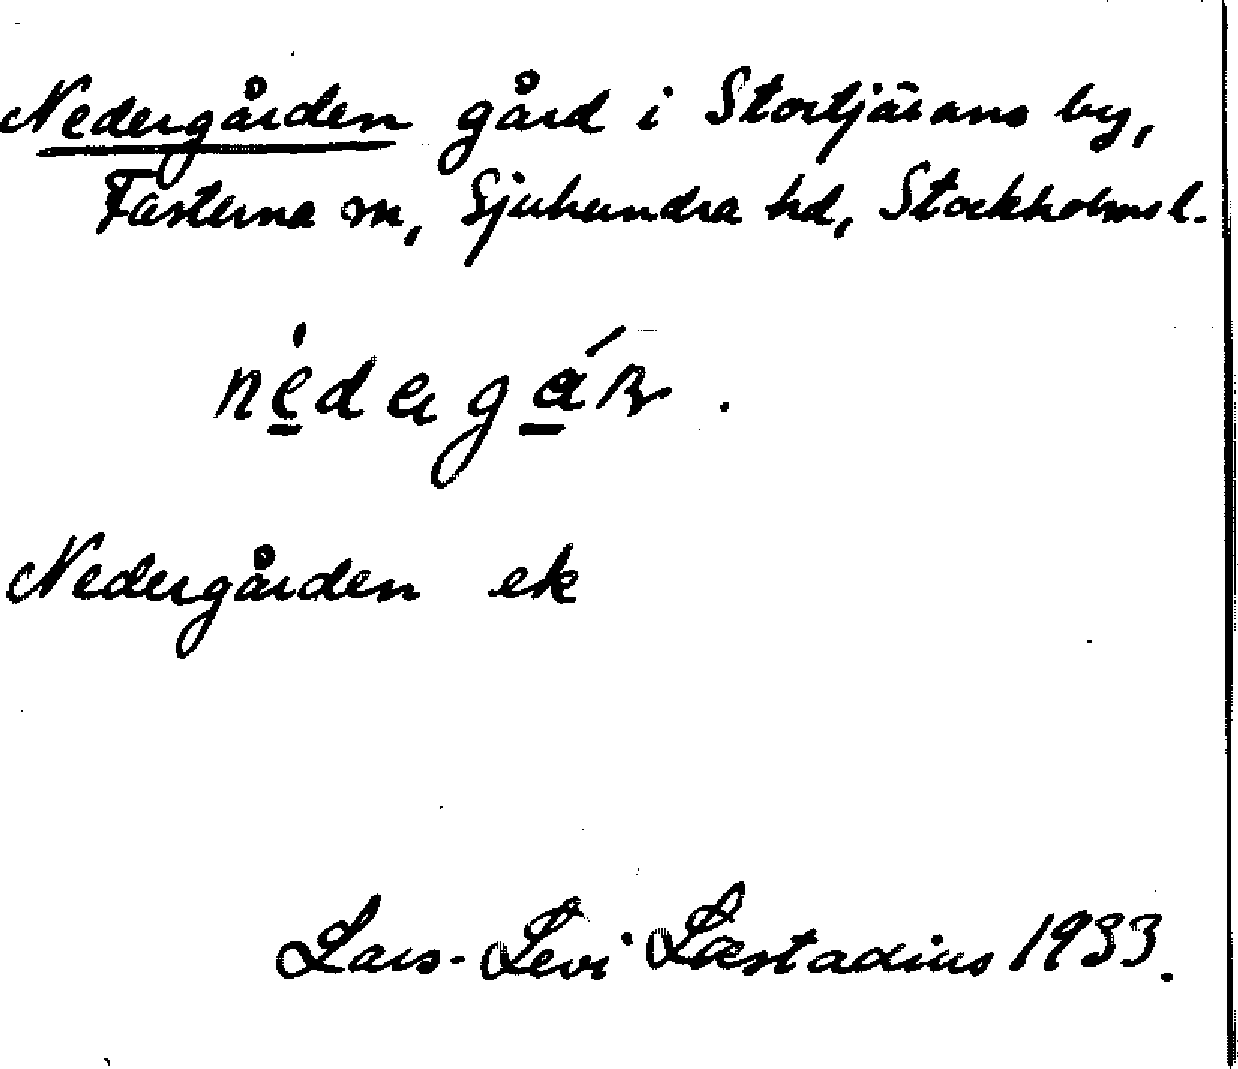 Nedergården gård i Stortjärans by,
Fasterna sn, Sjuhundra hd, Stockholms l.
Nedergården ek
Lars-Levi Læstadius 1933.